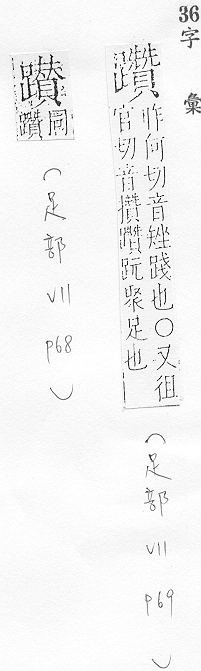 36
字彙
躦
昨何切音矬踐也○又徂
官切音攢躦聚足也
(足部 VII p69)
同
躦
(足部 VII p68)